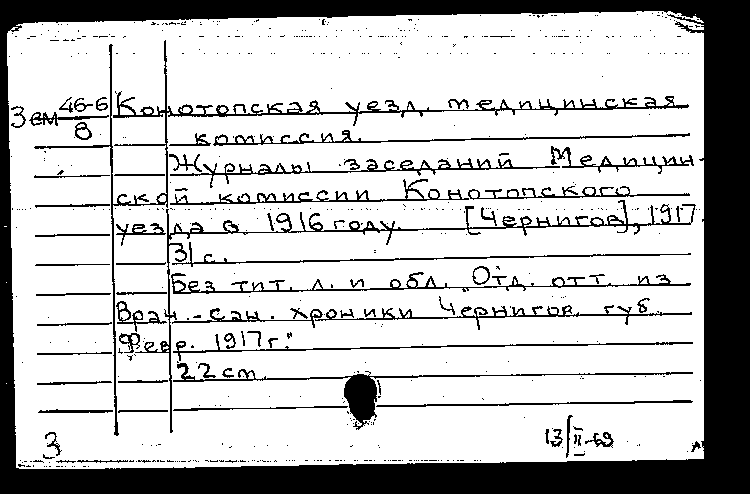 Зем 46-6/8 Конотопская уезд. медицинская
комиссия.
Журналы заседаний Медицин-
ской комиссии Конотопского
уезда в 1916 году. [Чернигов], 1917.
31 с.
Без тит. л. и обл. "Отд. отт. из
Врач.-сан. хроники Чернигов. губ.
Февр. 1917 г."
22 cm
3
13/II-69